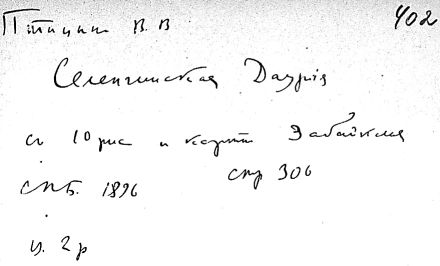 Птицын В. В 402
Селенгинская Даурія
съ 10 рис и карт Забайкалья
СПБ. 1896 стр 306
ц. 2 р